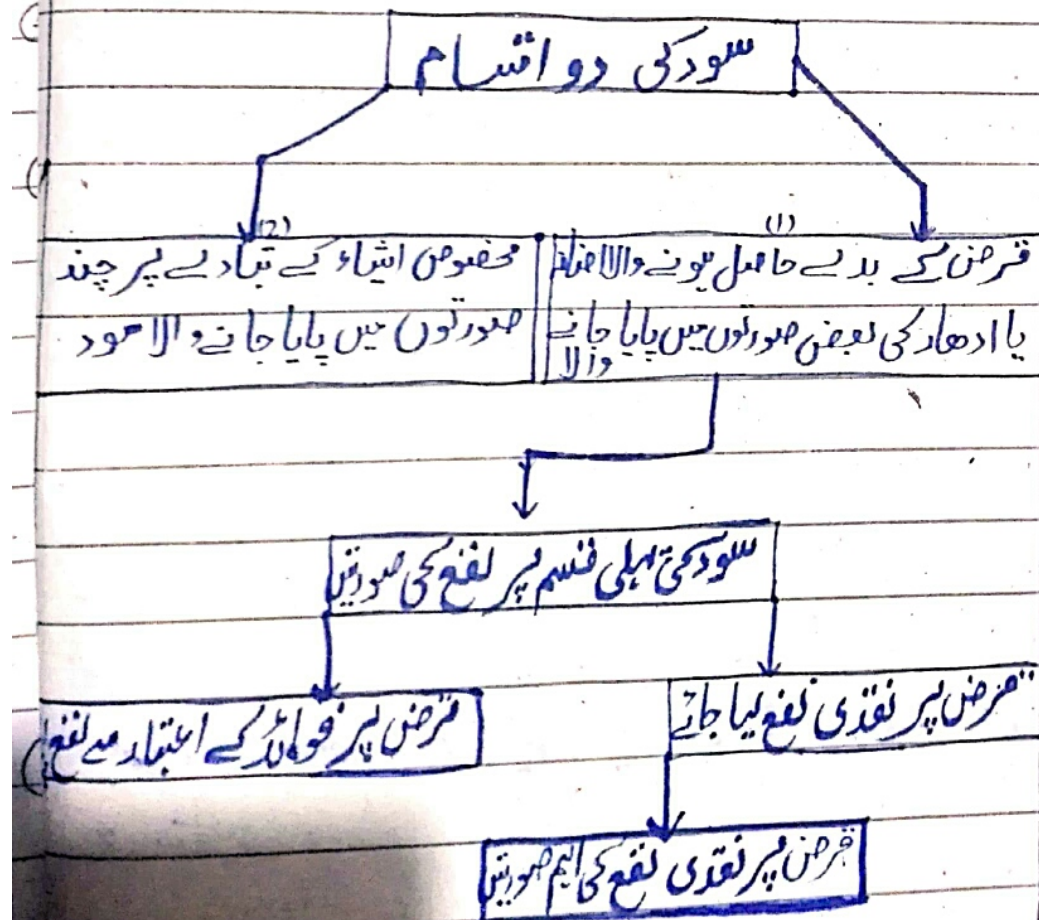 سود کی دو اقسام
(1)
قرض کے بدلے حاصل ہونے والا اضافہ
یا ادھار کی بعض صورتوں میں پایا جانے
والا
(2)
مخصوص اشیاء کے تبادلے پر چند
صورتوں میں پایا جانے والا سود
سود کی پہلی قسم پر نفع کی صورتیں
قرض پر نقدی نفع لیا جائے
قرض پر فوائد کے اعتبار سے نفع
قرض پر نقدی نفع کی اہم صورتیں